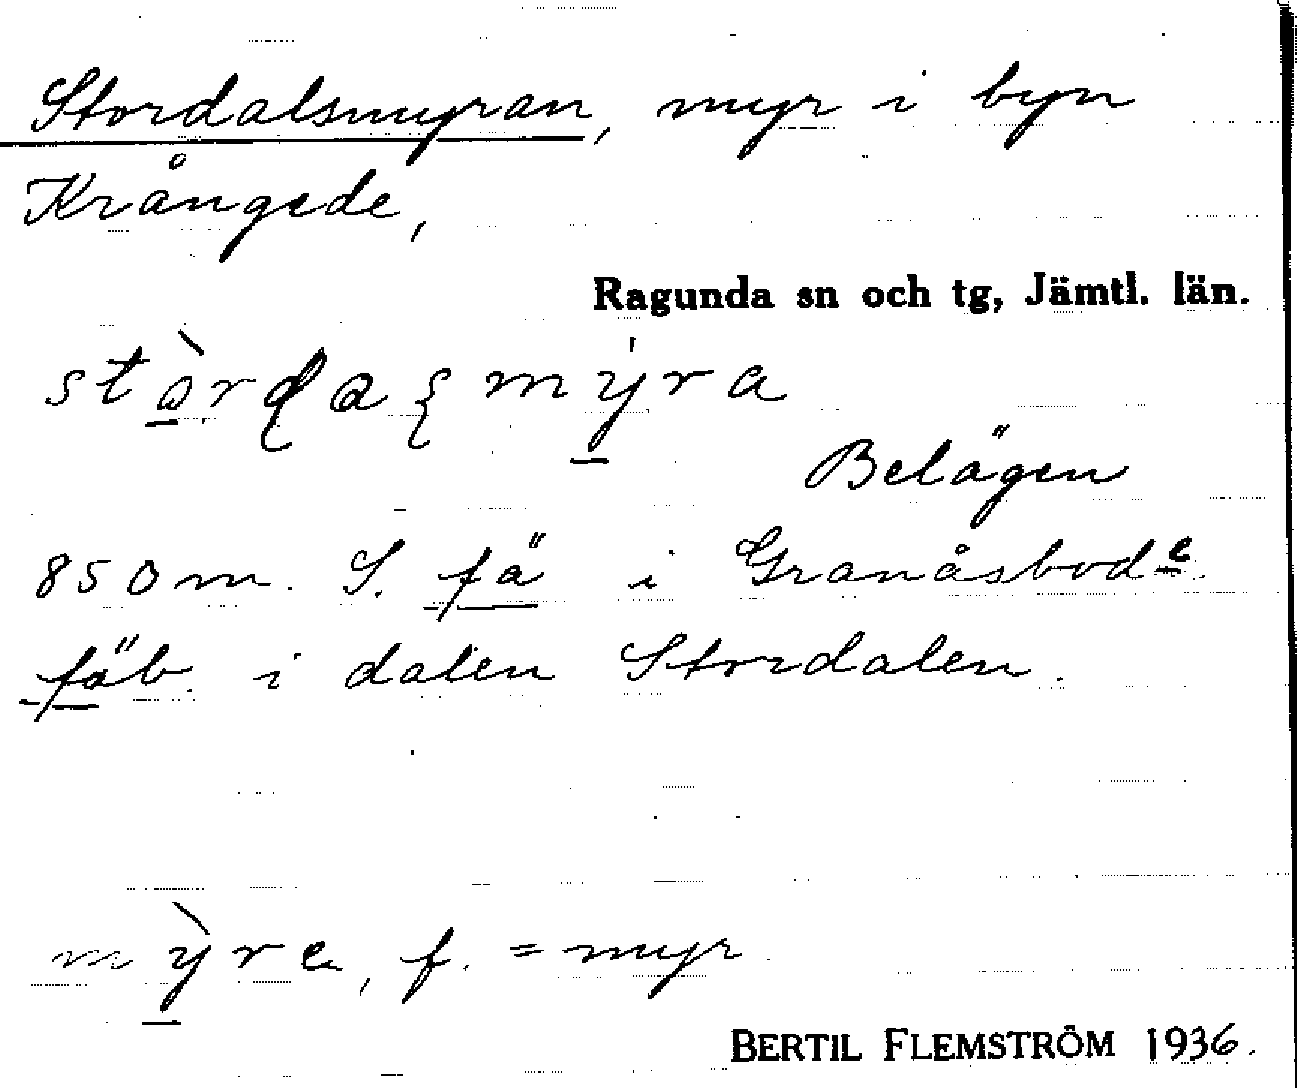 Stordalsmyran, myr i byn
Krångede,
Ragunda sn och tg, Jämtl. län.
Belägen
850 m. S. fä i Granåsbode
fäb. i dalen Stordalen.
mỳre, f. = myr
BERTIL FLEMSTRÖM 1936.